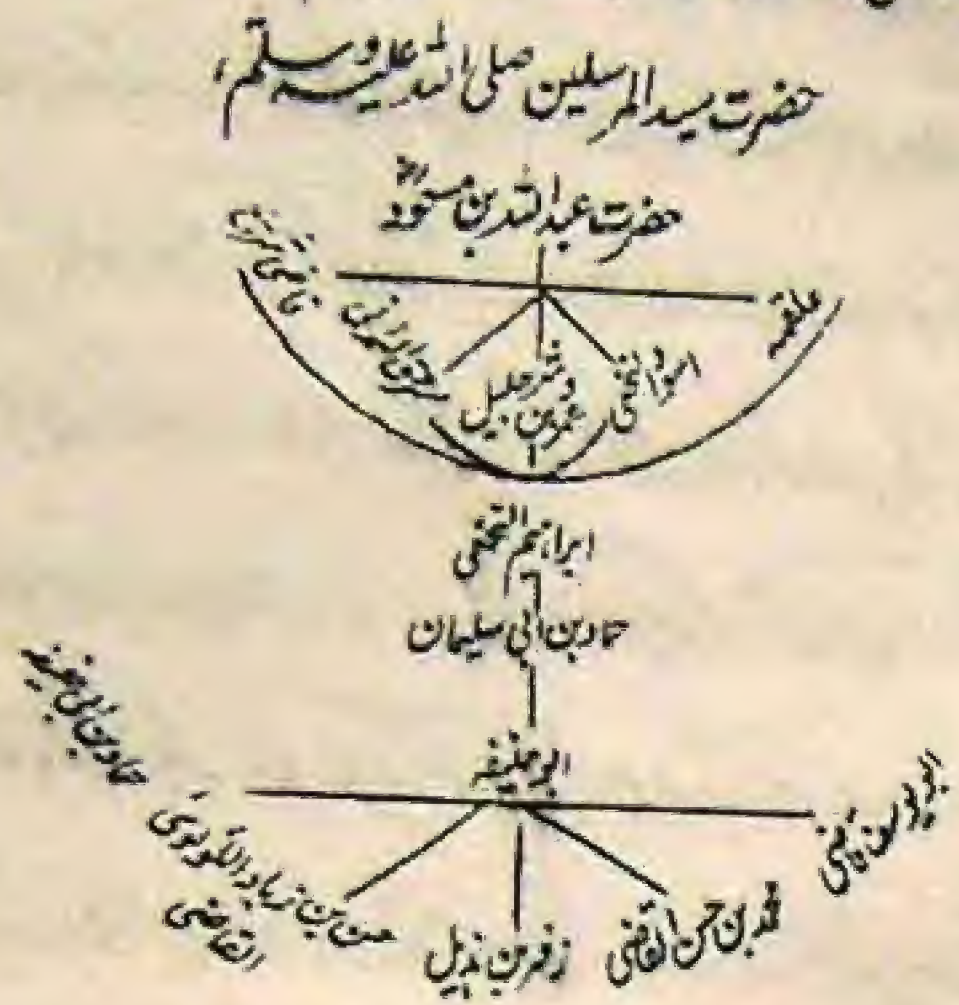 حضرت سید المرسلین صلی اللہ علیہ وسلم،
حضرت عبداللہ بن مسعودؓ
علقمہ
اسود النخعی
عمرو بن شرحبیل
مسروق الہمدانی
قاضی شریح
ابراہیم النخعی
حماد بن ابی سلیمان
ابو حنیفہ
ابو یوسف قاضی
محمد بن حسن القاضی
زفر بن ہذیل
حسن بن زیاد اللولوی
القاضی
حماد بن ابی حنیفہ